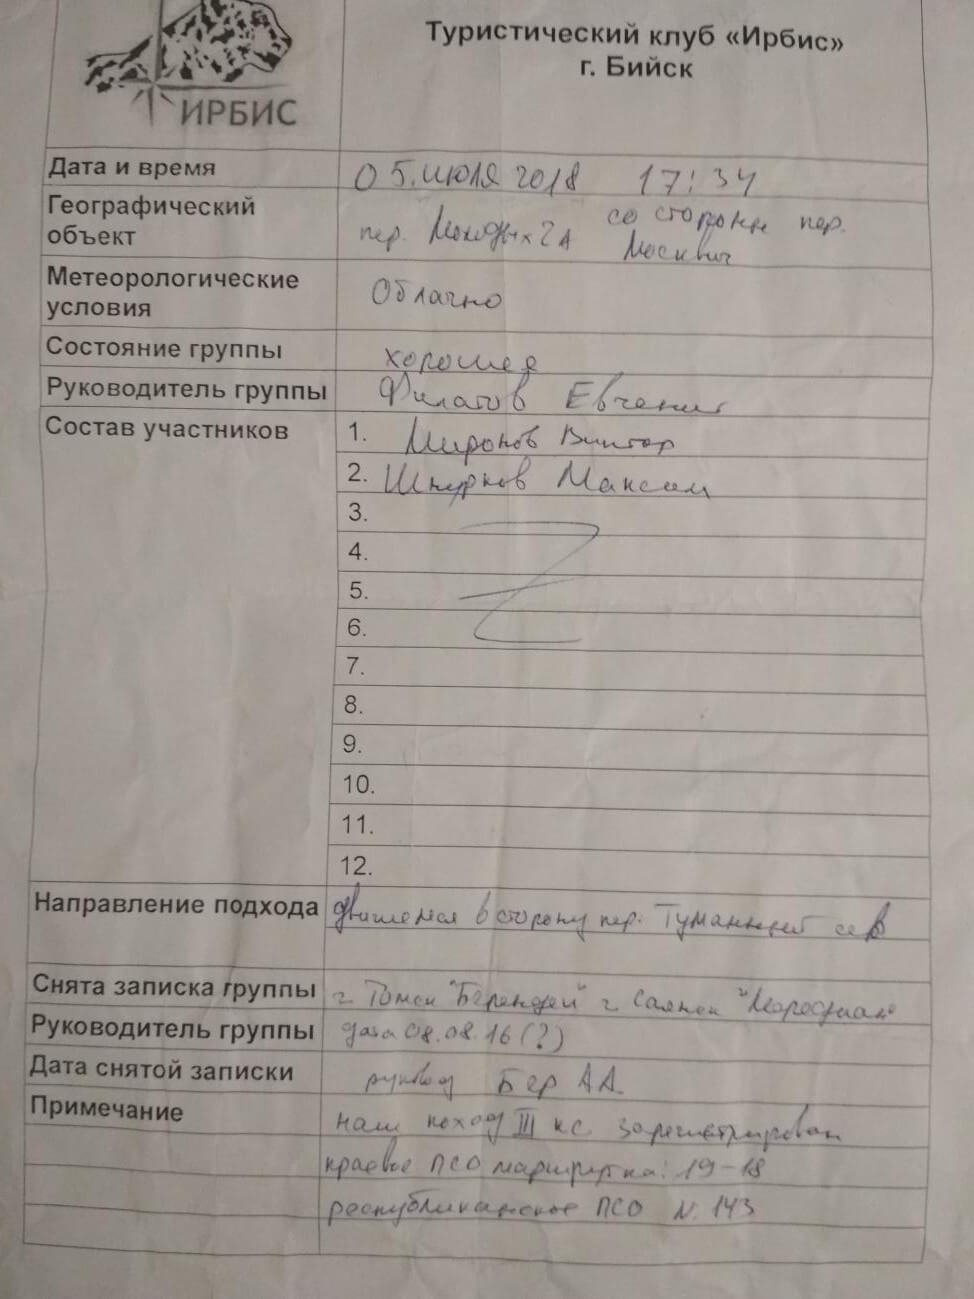 ИРБИС
Туристический клуб «Ирбис»
г. Бийск
Дата и время 05.июля 2018 17:34
Географический объект пер. Молодых 2А со стороны пер. Москвич
Метеорологические условия Облачно
Состояние группы хорошее
Руководитель группы Филатов Евгений
Состав участников 1. Миронов Виктор
2. Шнурков Максим
3.
4.
5.
6.
7.
8.
9.
10.
11.
12.
Направление подхода движемся в сторону пер. Туманный
Снята записка группы г. Томск "Берендей" г. Саянск "Меридиан"
Руководитель группы дата 08.08.16 (?)
Дата снятой записки руковод Бер А А.
Примечание наш поход III к.с. зарегистрирован
краевое ПСО маршрутка: 19-18
республиканское ПСО N. 143